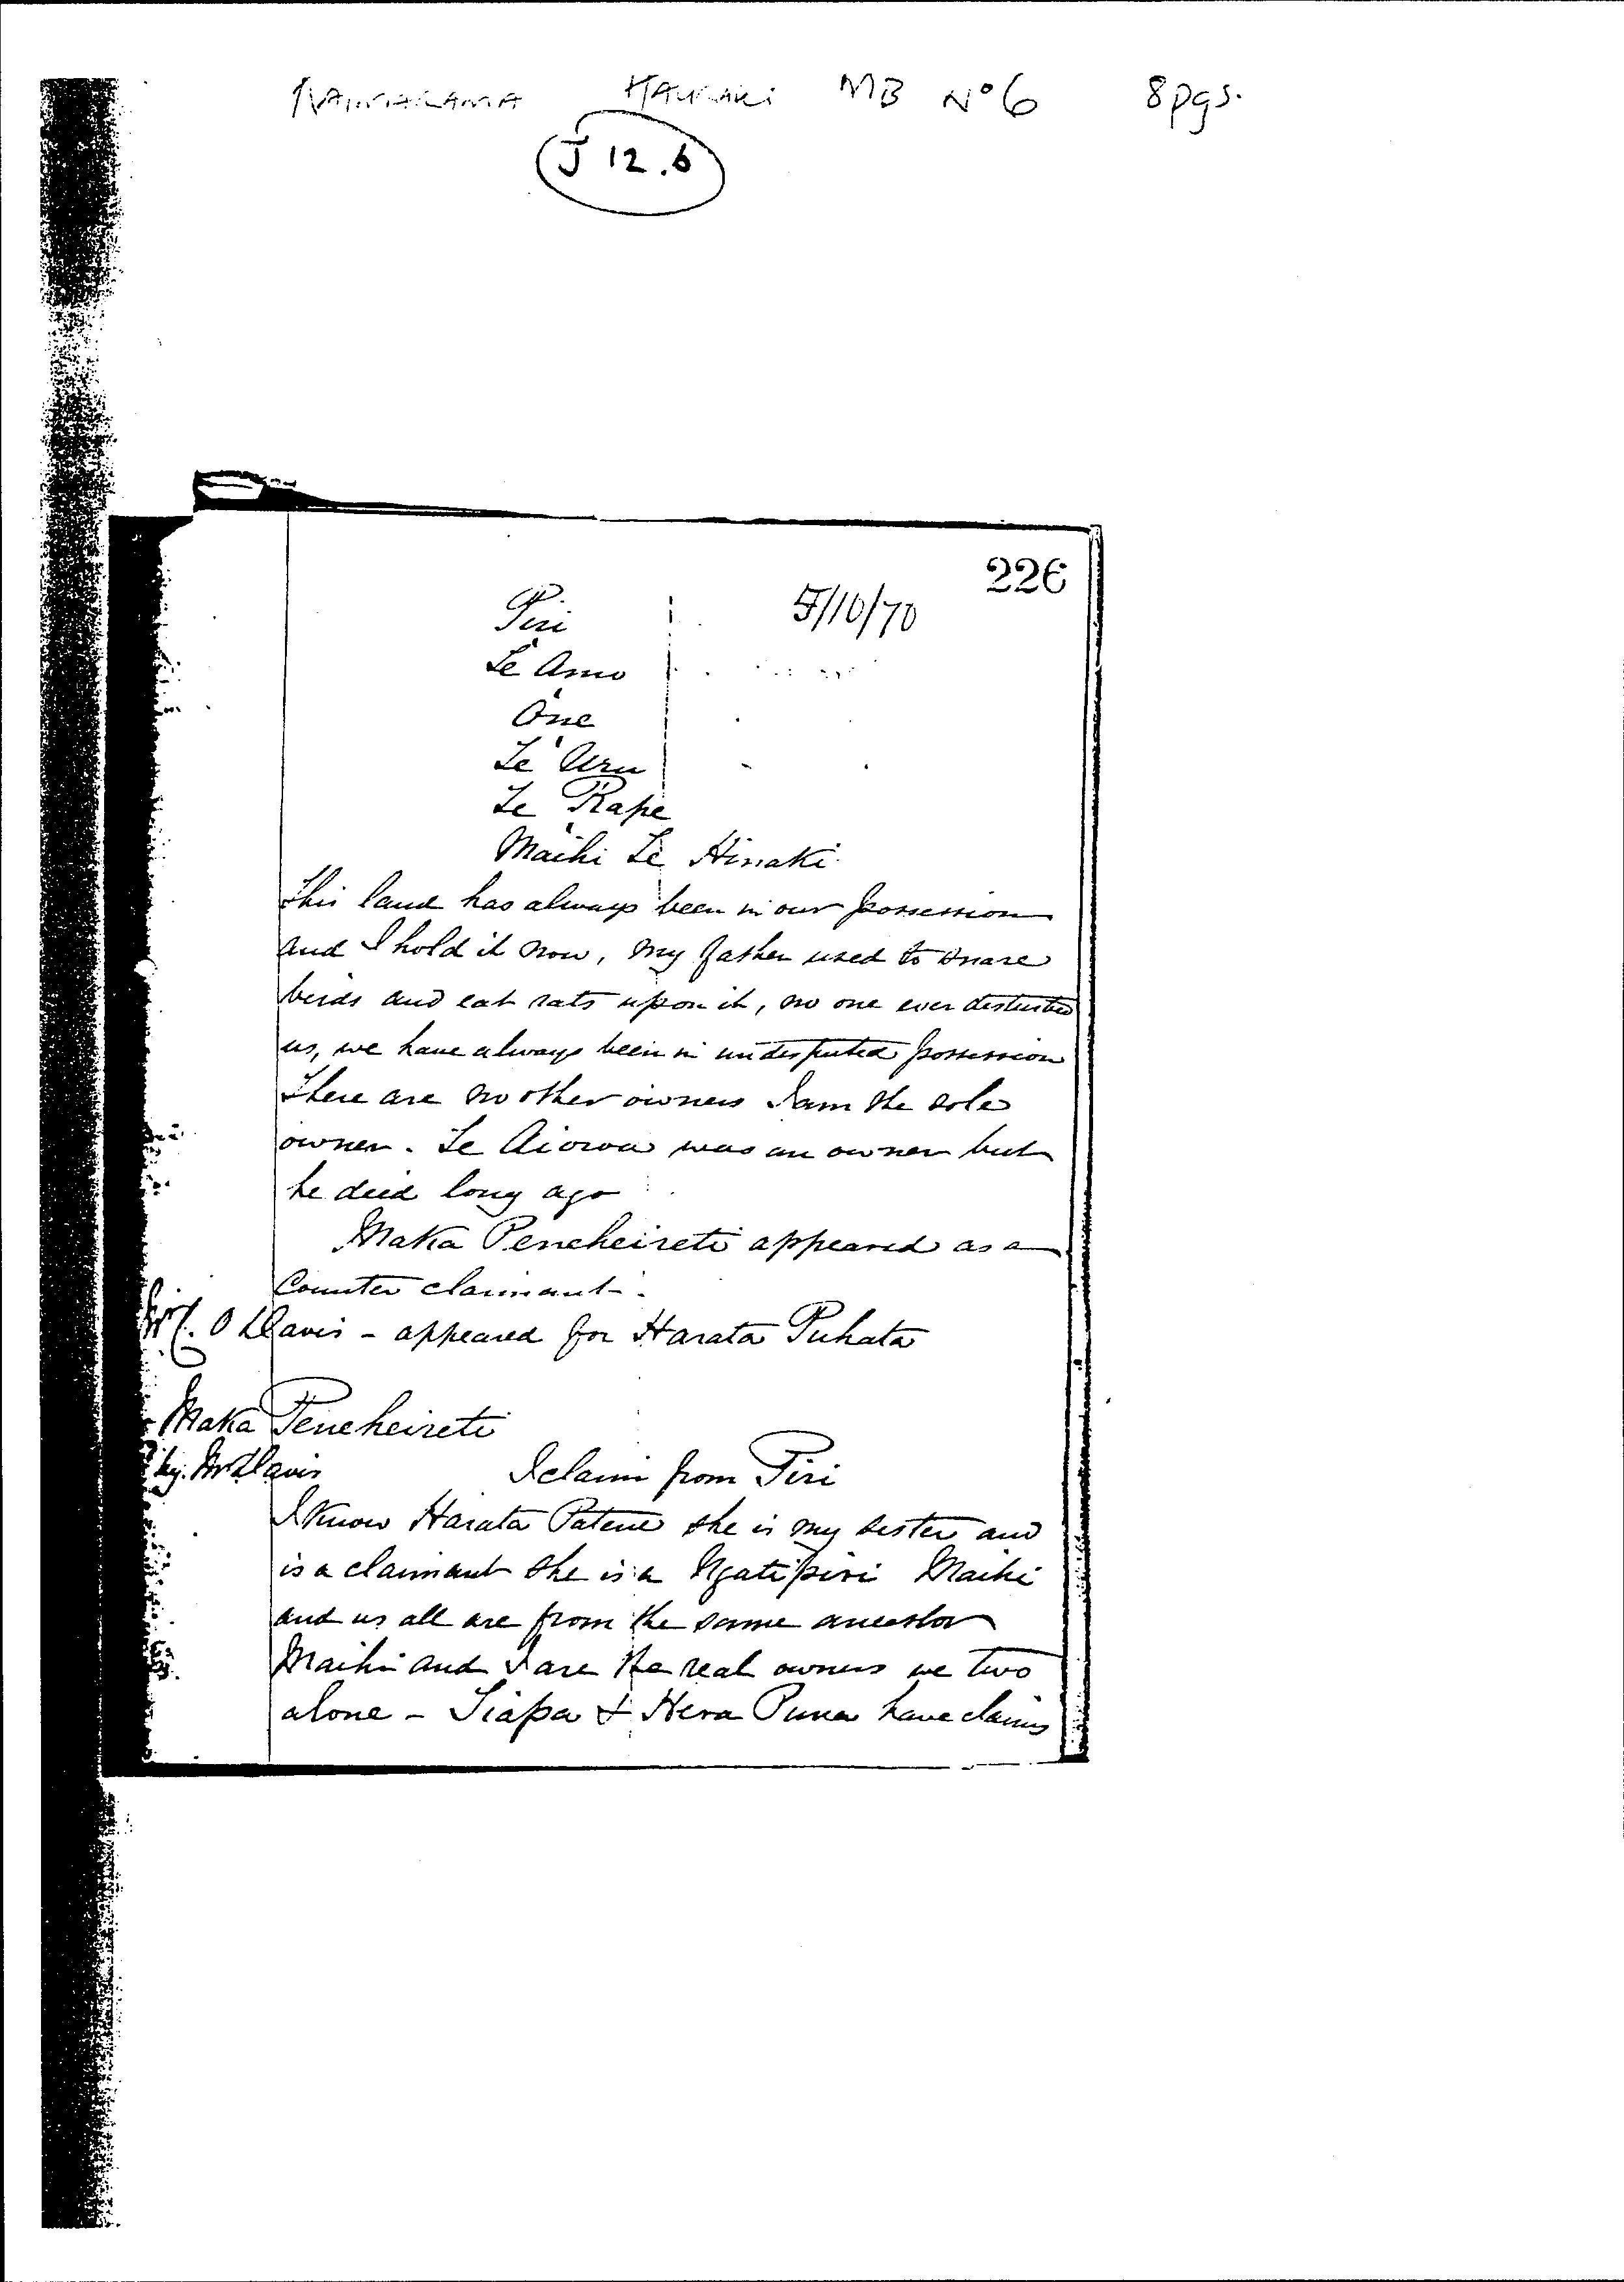 HAURAKI MB No 6 8pgs.
J 12.6
226
Piri 5/10/70
Te Amo
One
Te Uru
Te Rape
Maihi Te Hinaki
This land has always been in our possession
and I hold it now, my father used to snare
birds and eat rats upon it, no one ever disturbed
us, we have always been in undisputed possession
There are no other owners I am the sole
owner. Te Aioroa was an owner but
he died long ago
Maka Peneheireti appeared as a
Counter claimant.
C. O Davis - appeared for Harata Puhata
Maka Peneheireti
by Mr Davis I claim from Piri
I know Harata Patene she is my sister and
is a claimant she is a Ngatipiri Maihi
and us all are from the same ancestor
Maihi and I are the real owners we two
alone - Siapa & Hera Puna have claims